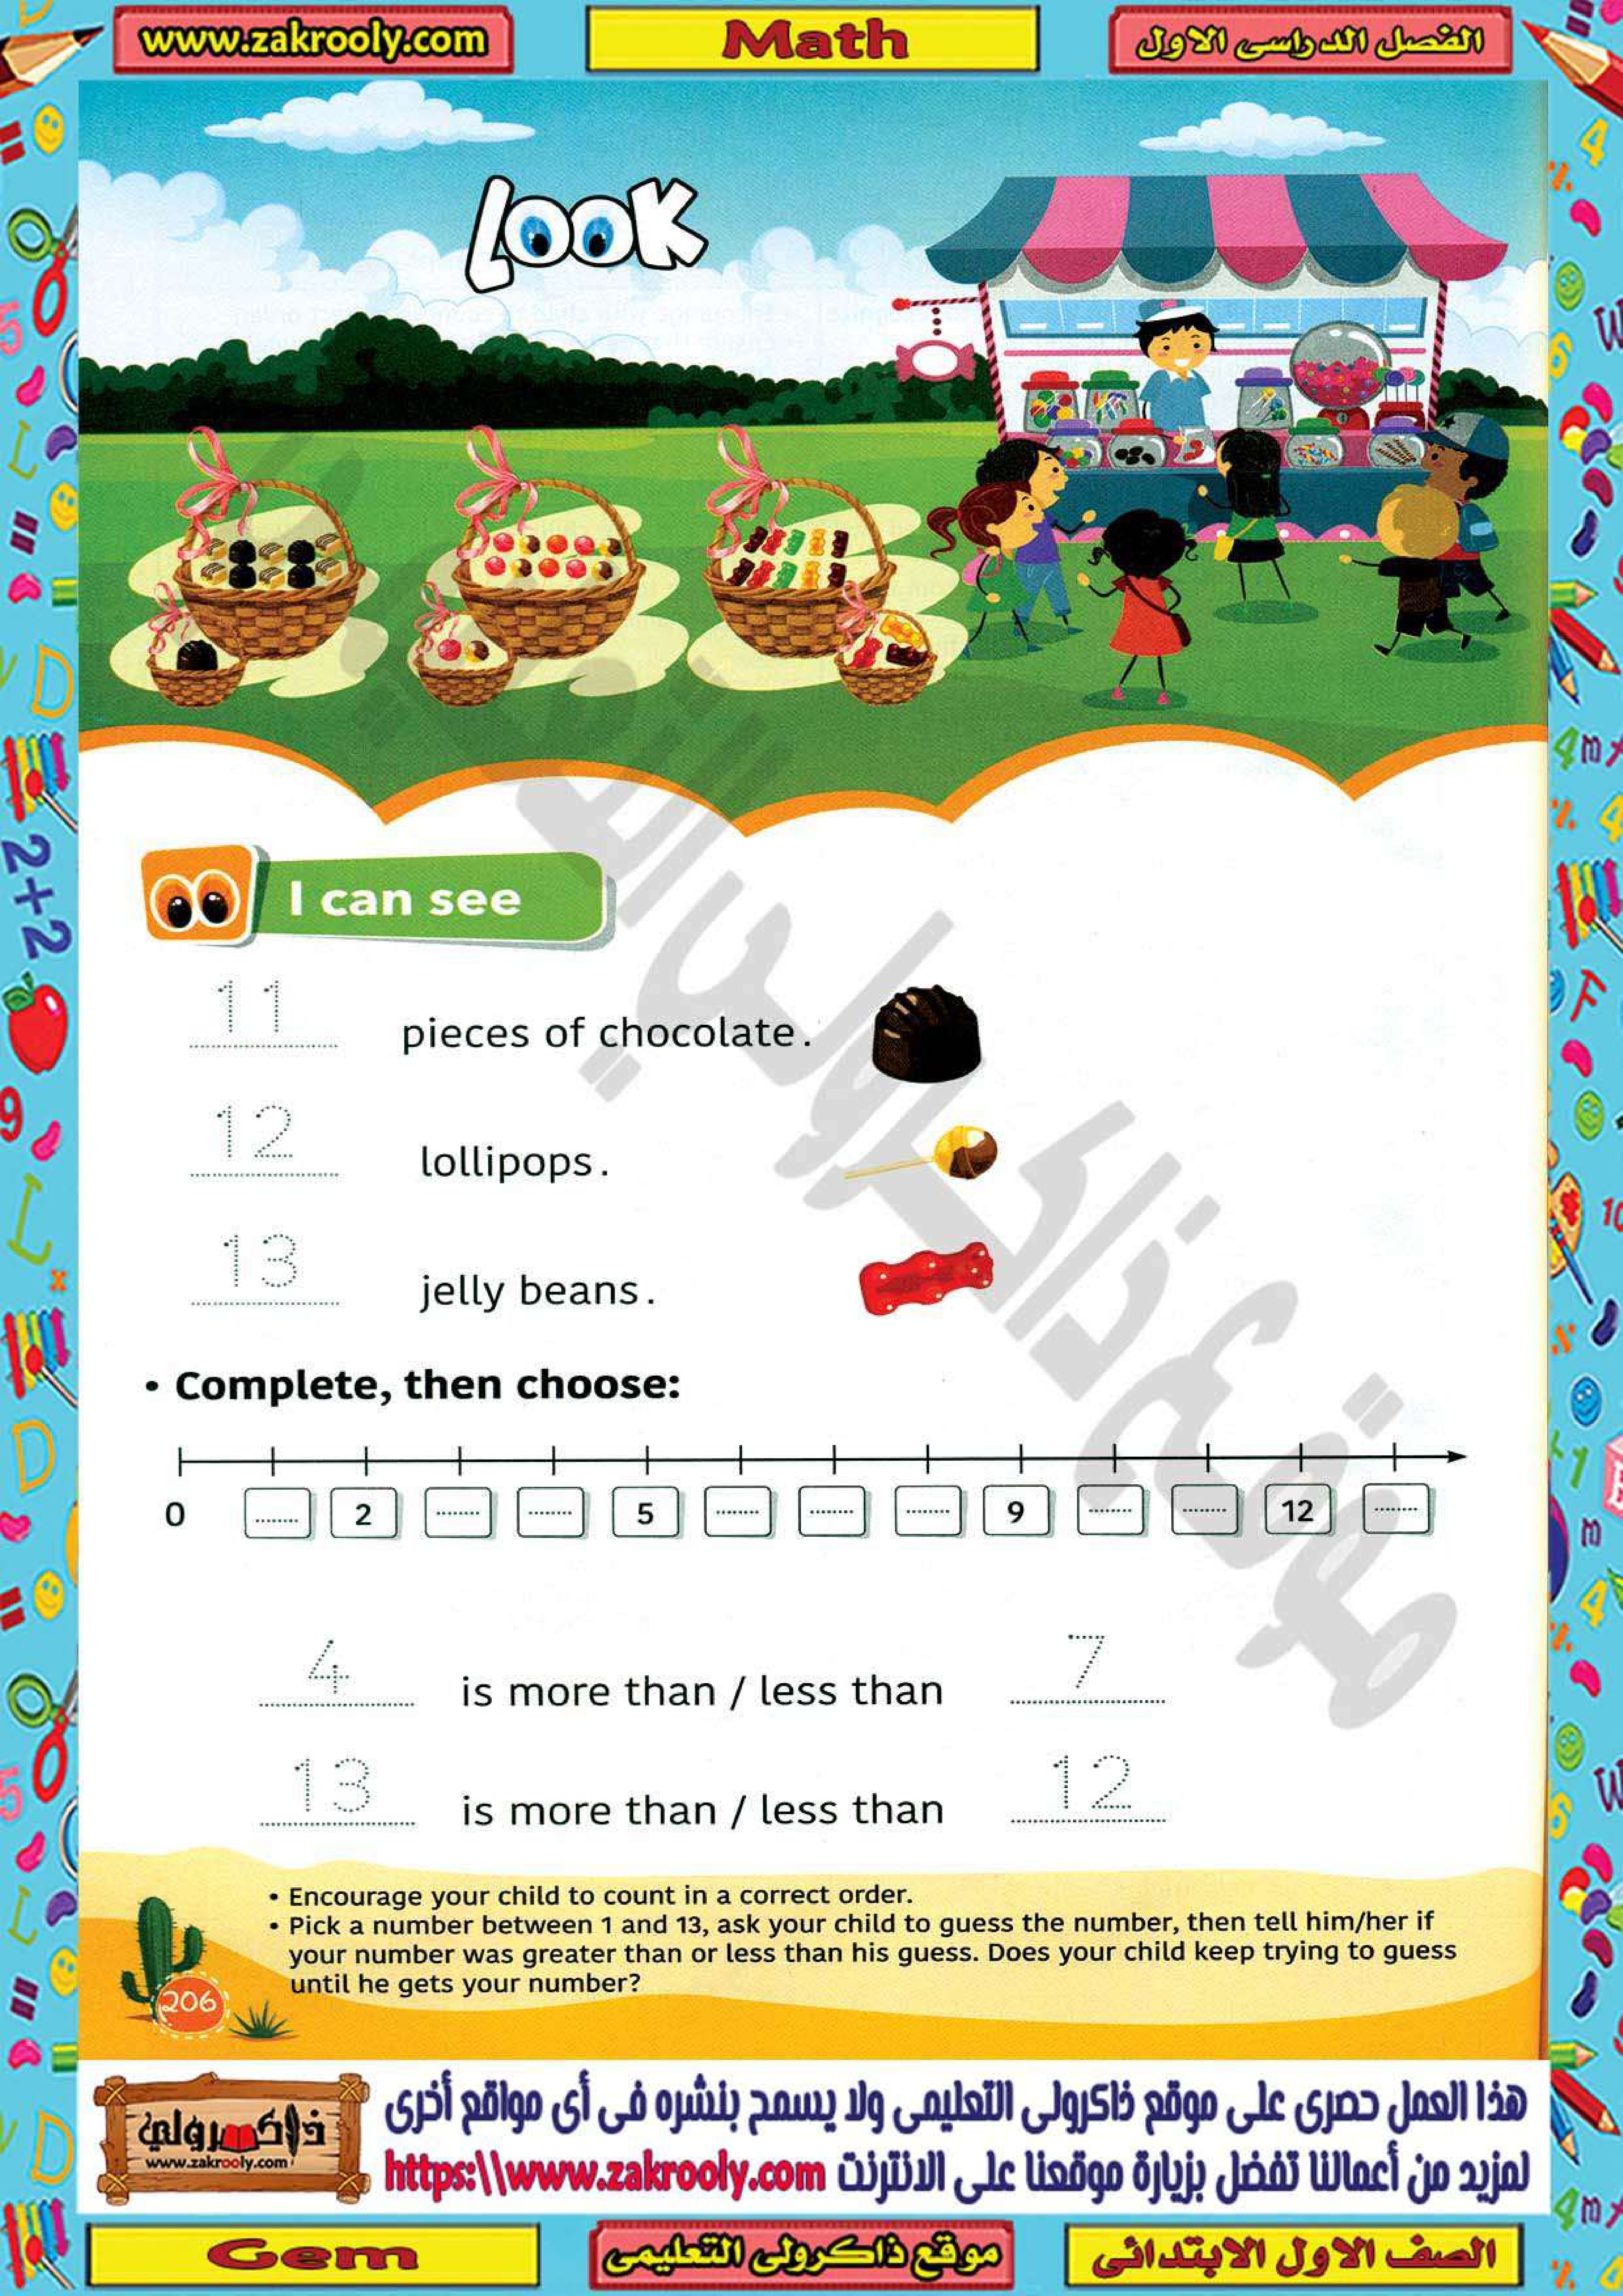 www.zakrooly.com
Math
الفصل الدراسى الاول
LOOK
I can see
11 pieces of chocolate.
12 lollipops.
13 jelly beans.
• Complete, then choose:
0 ........ 2 ........ ........ 5 ........ ........ ........ 9 ........ ........ 12 ........
4 is more than / less than 7
13 is more than / less than 12
• Encourage your child to count in a correct order.
• Pick a number between 1 and 13, ask your child to guess the number, then tell him/her if
your number was greater than or less than his guess. Does your child keep trying to guess
until he gets your number?
206
ذاكرولي
www.zakrooly.com
هذا العمل حصرى على موقع ذاكرولى التعليمى ولا يسمح بنشره فى أى مواقع أخرى
لمزيد من أعمالنا تفضل بزيارة موقعنا على الانترنت https:\\www.zakrooly.com
Gem
موقع ذاكرولى التعليمى
الصف الاول الابتدائى